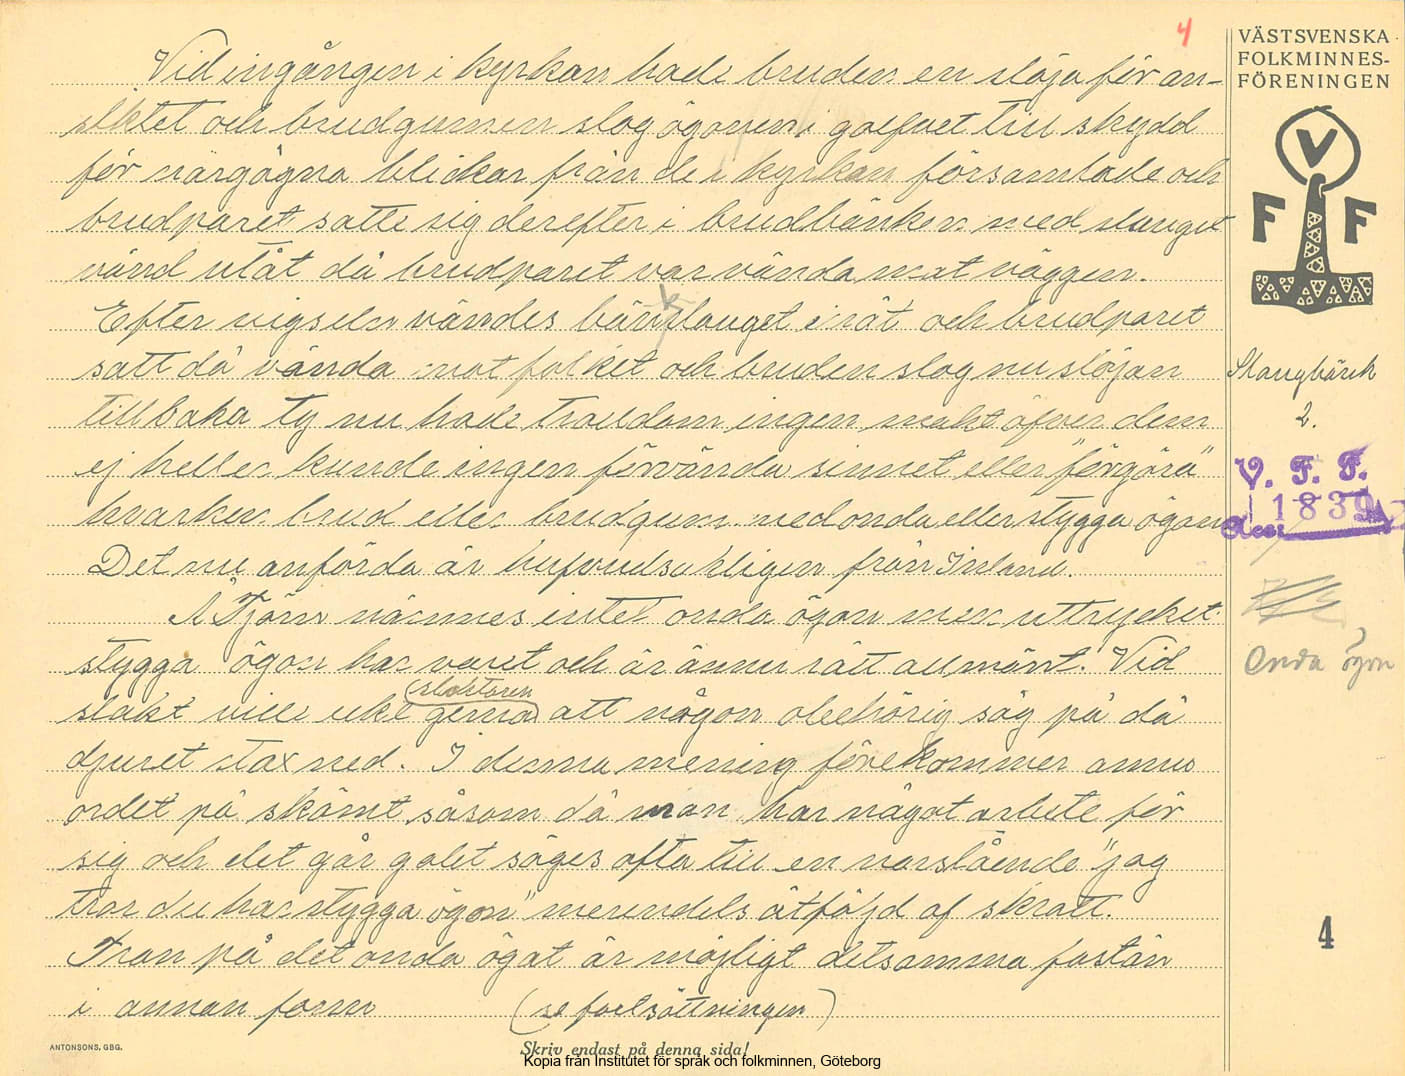 4
VÄSTSVENSKA
FOLKMINNES-
FÖRENINGEN
V
F F
Vid ingången i kyrkan hade bruden en slöja för an-
siktet och brudgummen slog ögonen i golfvet till skydd
för närgågna blickar från de i kyrkan församlade och
brudparet satte sig derefter i brudbänken med slauget
vänd utåt då brudparet var vända mot väggen.
Efter vigseln vändes bänkslauget inåt och brudparet
satt då vända mot folket och bruden slog nu slöjan
tillbaka ty nu hade trolldom ingen makt öfver dem
ej heller kunde ingen förvända sinnet eller "förgöra"
hvarken brud eller brudgum med onda eller stygga ögon
Det nu anförda är hufvudsakligen från Inland.
Å Tjörn nämnes intet onda ögon men uttrycket
stygga ögon har varit och är ännu rätt allmänt. Vid
slakt ville icke gerna (slaktaren) att någon obehörig såg på då
djuret stax ned. I denna mening förekommer ännu
ordet på skämt såsom då man har något arbete för
sig och det går galet säges ofta till en närstående "jag
tror du har stygga ögon" merendels åtföljd af skratt.
Tron på det onda ögat är möjligt detsamma fastän
i annan form (se fortsättningen)
Slaugbänk
2.
V. F. F.
1839
Acc:
Onda ögon
4
ANTONSONS, GBG.
Skriv endast på denna sida!
Kopia från Institutet för språk och folkminnen, Göteborg